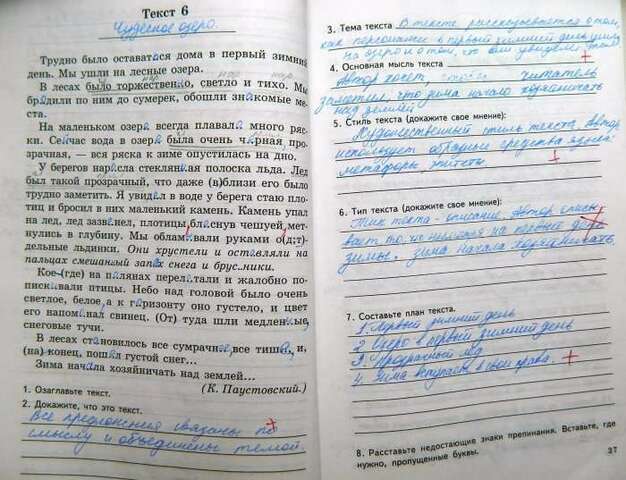 Текст 6
Чудесное озеро.
Трудно было оставаться дома в первый зимний
день. Мы ушли на лесные озера.
В лесах было торжественно, светло и тихо. Мы
бродили по ним до сумерек, обошли знакомые ме-
ста.
На маленьком озере всегда плавало много ряс-
ки. Сейчас вода в озере была очень чёрная, про-
зрачная, — вся ряска к зиме опустилась на дно.
У берегов наросла стеклянная полоска льда. Лед
был такой прозрачный, что даже (в)близи его было
трудно заметить. Я увидел в воде у берега стаю пло-
тиц и бросил в них маленький камень. Камень упал
на лед, лед зазвенел, плотицы, блеснув чешуей, мет-
нулись в глубину. Мы обламывали руками о(д;т)-
дельные льдинки. Они хрустели и оставляли на
пальцах смешанный запах снега и брусники.
Кое-(где) на полянах перелетали и жалобно по-
пискивали птицы. Небо над головой было очень
светлое, белое, а к горизонту оно густело, и цвет
его напоминал свинец. (От) туда шли медленные,
снеговые тучи.
В лесах становилось все сумрачнее, все тише, и,
(на) конец, пошел густой снег...
Зима начала хозяйничать над землей...
(К. Паустовский.)
1. Озаглавьте текст.
2. Докажите, что это текст.
Все предложения связаны по
смыслу и объединены темой.
3. Тема текста В тексте рассказывается о том,
как персонажи в первый зимний день ушли
на озеро и о том, что они увидели там.
4. Основная мысль текста
Автор хочет, чтобы читатель
заметил, что зима начала хозяйничать
над землей
5. Стиль текста (докажите свое мнение):
Художественный стиль текста. Автор
использует образные средства языка:
метафоры, эпитеты
6. Тип текста (докажите свое мнение):
Тип текста - описание. Автор описы-
вает то, не похожа на первые дни
зимы. Зима начала хозяйничать.
7. Составьте план текста.
1. Первый зимний день
2. Озеро в первый зимний день
3. Прозрачный лёд
4. Зима вступает в свои права.
8. Расставьте недостающие знаки препинания. Вставьте, где
нужно, пропущенные буквы.
37